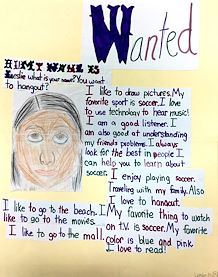 Wanted
HI MY NAME IS
what is your name? You want
to hangout?
I like to draw pictures. My
favorite sport is soccer. I love
to use technology to hear music!
I am a good listener. I
am also good at understanding
my friends problems. I always
look for the best in people I
can help you to learn about
soccer.
I enjoy playing soccer.
Traveling with my family. Also
I love to hangout.
I like to go to the beach. I My favorite thing to watch
like to go to the movies. on t.v. is soccer. My favorite
I like to go to the mall color is blue and pink
I love to read!